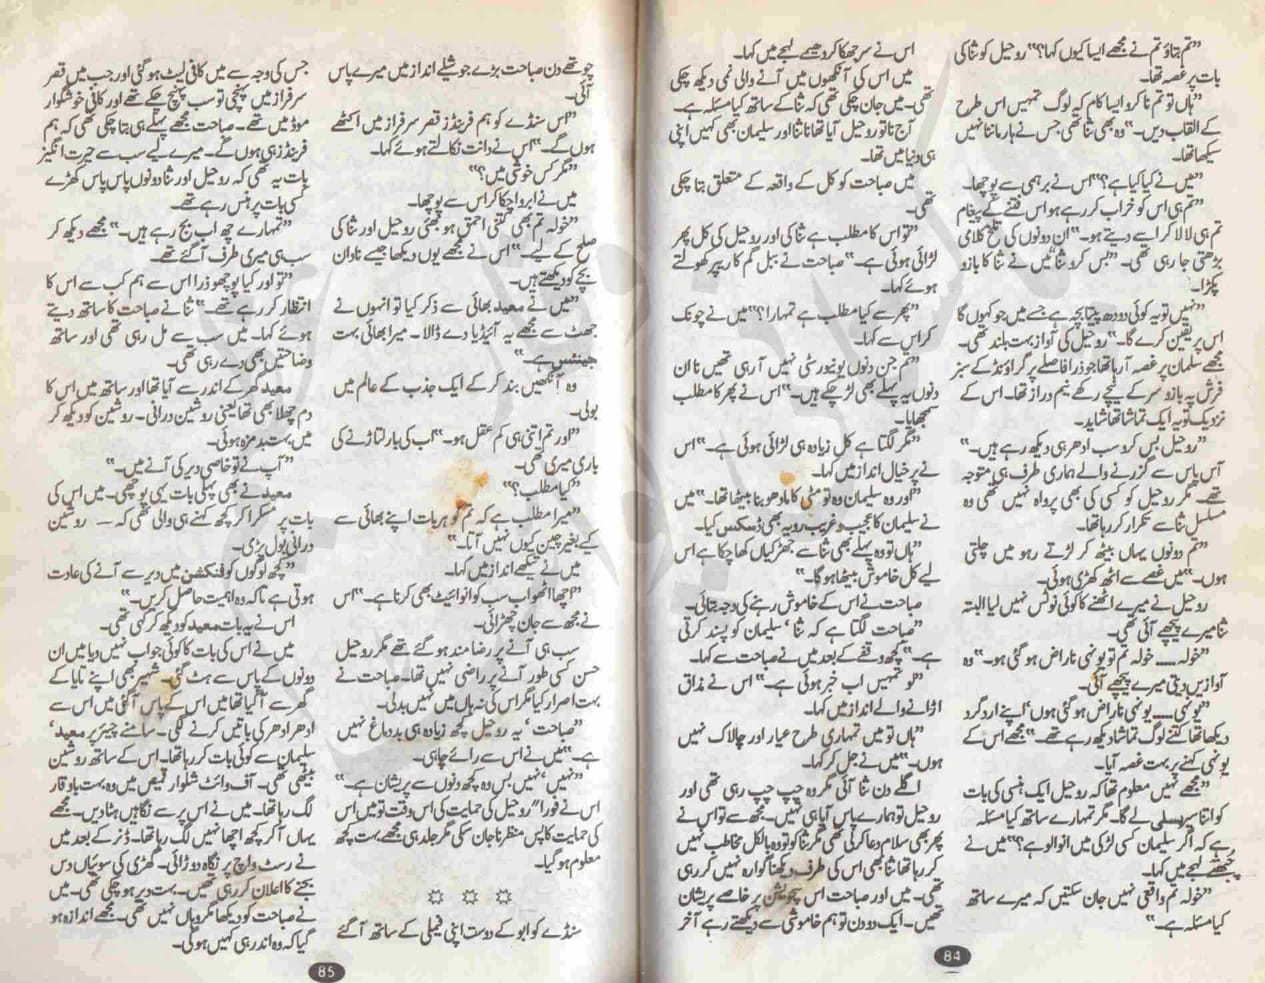 ”تم بتاؤ تم نے مجھے ایسا کیوں کہا؟“ روحیل کو ثنا کی
بات پر غصہ تھا۔
”ہاں تو تم نا کرو ایسا کام کہ لوگ تمہیں اس طرح
کے القاب دیں۔“ وہ بھی ثنا تھی جس نے ہار ماننا نہیں
سیکھا تھا۔
”میں نے کیا کیا ہے؟“ اس نے برہمی سے پوچھا۔
”تم ہی اس کو خراب کر رہے ہو اس فتنے کے پیغام
تم ہی لا لا کر اسے دیتے ہو۔“ ان دونوں کی تلخ کلامی
بڑھتی جا رہی تھی۔ ”بس کرو ثنا“ میں نے ثنا کا بازو
پکڑا۔
”نہیں تو یہ کوئی دودھ پیتا بچہ ہے جسے میں جو کہوں گا
اس پر یقین کرے گا۔“ روحیل کی آواز بہت بلند تھی۔
مجھے سلمان پر غصہ آ رہا تھا جو ذرا فاصلے پر گراؤنڈ کے سبز
فرش پہ بازو سر کے نیچے رکھے نیم دراز تھا۔ اس کے
نزدیک تو یہ ایک تماشا تھا شاید۔
”روحیل بس کرو سب ادھر ہی دیکھ رہے ہیں۔“
آس پاس سے گزرنے والے ہماری طرف ہی متوجہ
تھے۔ مگر روحیل کو کسی کی بھی پرواہ نہیں تھی وہ
مسلسل ثنا سے تکرار کر رہا تھا۔
”تم دونوں یہاں بیٹھ کر لڑتے رہو میں چلتی
ہوں۔“ میں غصے سے اٹھ کھڑی ہوئی۔
روحیل نے میرے اٹھنے کا کوئی نوٹس نہیں لیا البتہ
ثنا میرے پیچھے آئی تھی۔
”خولہ ..... خولہ تم تو یونہی ناراض ہو گئی ہو۔“ وہ
آوازیں دیتی میرے پیچھے آئی۔
”یونہی ..... یونہی ناراض ہو گئی ہوں‘ اپنے ارد گرد
دیکھا تھا کتنے لوگ تماشا دیکھ رہے تھے۔“ مجھے اس کے
یونہی کہنے پر بہت غصہ آیا۔
”مجھے نہیں معلوم تھا کہ روحیل ایک ہنسی کی بات
کو اتنا سیریسلی لے گا۔ مگر تمہارے ساتھ کیا مسئلہ
ہے کہ اگر سلیمان کسی لڑکی میں انوالو ہے؟“ میں نے
چبھتے لہجے میں کہا۔
”خولہ تم واقعی نہیں جان سکتیں کہ میرے ساتھ
کیا مسئلہ ہے۔“
اس نے سر جھکا کر دھیمے لہجے میں کہا۔
میں اس کی آنکھوں میں آنے والی نمی دیکھ چکی
تھی۔ میں جان چکی تھی کہ ثنا کے ساتھ کیا مسئلہ ہے۔
آج نا تو روحیل آیا تھا نا ثنا اور سلیمان بھی کہیں اپنی
ہی دنیا میں تھا۔
میں صباحت کو کل کے واقعہ کے متعلق بتا چکی
تھی۔
”تو اس کا مطلب ہے ثنا کی اور روحیل کی کل پھر
لڑائی ہوئی ہے۔“ صباحت نے ببل گم کا ریپر کھولتے
ہوئے کہا۔
”پھر سے کیا مطلب ہے تمہارا؟“ میں نے چونک
کر اس سے کہا۔
”تم جن دنوں یونیورسٹی نہیں آ رہی تھیں نا ان
دنوں یہ پہلے بھی لڑ چکے ہیں۔“ اس نے پھر کا مطلب
سمجھایا۔
”مگر لگتا ہے کل زیادہ ہی لڑائی ہوئی ہے۔“ اس
نے پر خیال انداز میں کہا۔
”اور وہ سلیمان وہ تو مٹی کا مادھو بنا بیٹھا تھا۔“ میں
نے سلیمان کا عجیب و غریب رویہ بھی ڈسکس کیا۔
”ہاں تو وہ پہلے بھی ثنا سے جھڑکیاں کھا چکا ہے اس
لیے کل خاموش بیٹھا ہوگا۔“
صباحت نے اس کے خاموش رہنے کی وجہ بتائی۔
”صباحت لگتا ہے کہ ثنا‘ سلیمان کو پسند کرتی
ہے۔“ کچھ وقفے کے بعد میں نے صباحت سے کہا۔
”لو تمہیں اب خبر ہوئی ہے۔“ اس نے مذاق
اڑانے والے انداز میں کہا۔
”ہاں تو میں تمہاری طرح عیار اور چالاک نہیں
ہوں۔“ میں نے جل کر کہا۔
اگلے دن ثنا آئی مگر وہ چپ چپ رہی تھی اور
روحیل تو ہمارے پاس آیا ہی نہیں۔ مجھ سے تو اس نے
پھر بھی سلام دعا کر لی تھی مگر ثنا کو تو وہ بالکل مخاطب نہیں
کر رہا تھا ثنا بھی اس کی طرف دیکھنا گوارہ نہیں کر رہی
تھی۔ میں اور صباحت اس سچویشن پر خاصے پریشان
تھیں۔ ایک دو دن تو ہم خاموشی سے دیکھتے رہے آخر
84
چوتھے دن صباحت بڑے جوشیلے انداز میں میرے پاس
آئی۔
”اس سنڈے کو ہم فرینڈز قصر سرفراز میں اکٹھے
ہوں گے۔“ اس نے دانت نکالتے ہوئے کہا۔
”مگر کس خوشی میں؟“
میں نے ابرو اچکا کر اس سے پوچھا۔
”خولہ تم بھی کتنی احمق ہو بھئی روحیل اور ثنا کی
صلح کے لیے۔“ اس نے مجھے یوں دیکھا جیسے نادان
بچے کو دیکھتے ہیں۔
”میں نے معید بھائی سے ذکر کیا تو انہوں نے
جھٹ سے مجھے یہ آئیڈیا دے ڈالا۔ میرا بھائی بہت
جینئس ہے۔“
وہ آنکھیں بند کر کے ایک جذب کے عالم میں
بولی۔
”اور تم اتنی ہی کم عقل ہو۔“ اب کی بار لتاڑنے کی
باری میری تھی۔
”کیا مطلب؟“
”میرا مطلب ہے کہ تم کو ہر بات اپنے بھائی سے
کہے بغیر چین کیوں نہیں آتا۔“
میں نے تیکھے انداز میں کہا۔
”اچھا اٹھو اب سب کو انوائیٹ بھی کرنا ہے۔“ اس
نے مجھ سے جان چھڑائی۔
سب ہی آنے پر رضا مند ہو گئے تھے مگر روحیل
حسن کسی طور آنے پر راضی نہیں تھا۔ صباحت نے
بہت اصرار کیا مگر اس کی نہ ہاں میں نہیں بدلی۔
”صباحت‘ یہ روحیل کچھ زیادہ ہی بد دماغ نہیں
ہے۔“ میں نے اس سے رائے چاہی۔
”نہیں‘ نہیں بس وہ کچھ دنوں سے پریشان ہے۔“
اس نے فورا“ روحیل کی حمایت کی اس وقت تو میں اس
کی حمایت کا پس منظر نا جان سکی مگر جلد ہی مجھے بہت کچھ
معلوم ہو گیا۔
سنڈے کو ابو کے دوست اپنی فیملی کے ساتھ آ گئے
جس کی وجہ سے میں کافی لیٹ ہو گئی اور جب میں قصر
سرفراز میں پہنچی تو سب پہنچ چکے تھے اور کافی خوشگوار
موڈ میں تھے۔ صباحت مجھے پہلے ہی بتا چکی تھی کہ ہم
فرینڈز ہی ہوں گے۔ میرے لیے سب سے حیرت انگیز
بات یہ تھی کہ روحیل اور ثنا دونوں پاس پاس کھڑے
کسی بات پر ہنس رہے تھے۔
”تمہارے چھ اب بج رہے ہیں۔“ مجھے دیکھ کر
سب ہی میری طرف آ گئے تھے۔
”تو اور کیا پوچھو ذرا اس سے ہم کب سے اس کا
انتظار کر رہے تھے۔“ ثنا نے صباحت کا ساتھ دیتے
ہوئے کہا۔ میں سب سے مل رہی تھی اور ساتھ
وضاحتیں بھی دے رہی تھی۔
معید گھر کے اندر سے آیا تھا اور ساتھ میں اس کا
دم چھلا بھی تھا یعنی روشین درانی۔ روشین کو دیکھ کر
میں بہت بد مزہ ہوئی۔
”آپ نے تو خاصی دیر کی آنے میں۔“
معید نے بھی پہلی بات یہی پوچھی۔ میں اس کی
بات پر مسکرا کر کچھ کہنے ہی والی تھی کہ ۔۔ روشین
درانی بول پڑی۔
”کچھ لوگوں کو فنکشن میں دیر سے آنے کی عادت
ہوتی ہے تا کہ وہ اہمیت حاصل کریں۔“
اس نے یہ بات معید کو دیکھ کر کہی تھی۔
میں نے اس کی بات کا کوئی جواب نہیں دیا میں ان
دونوں کے پاس سے ہٹ گئی۔ شہیر بھی اپنے تایا کے
گھر سے آ گیا تھا میں اس کے پاس آ گئی میں اس سے
ادھر ادھر کی باتیں کرنے لگی۔ سامنے چیئر پر معید‘
سلیمان سے کوئی بات کر رہا تھا۔ اس کے ساتھ روشین
بیٹھی تھی۔ آف وائٹ شلوار قمیص میں وہ بہت باوقار
لگ رہا تھا۔ میں نے اس پر سے نگاہیں ہٹا دیں۔ مجھے
یہاں آ کر کچھ اچھا نہیں لگ رہا تھا۔ ڈنر کے بعد میں
نے رسٹ واچ پر نگاہ دوڑائی۔ گھڑی کی سوئیاں دس
بجنے کا اعلان کر رہی تھیں۔ بہت دیر ہو چکی تھی۔ میں
نے صباحت کو دیکھا مگر وہاں نہیں تھی۔ مجھے اندازہ ہو
گیا کہ وہ اندر ہی کہیں ہوگی۔
85